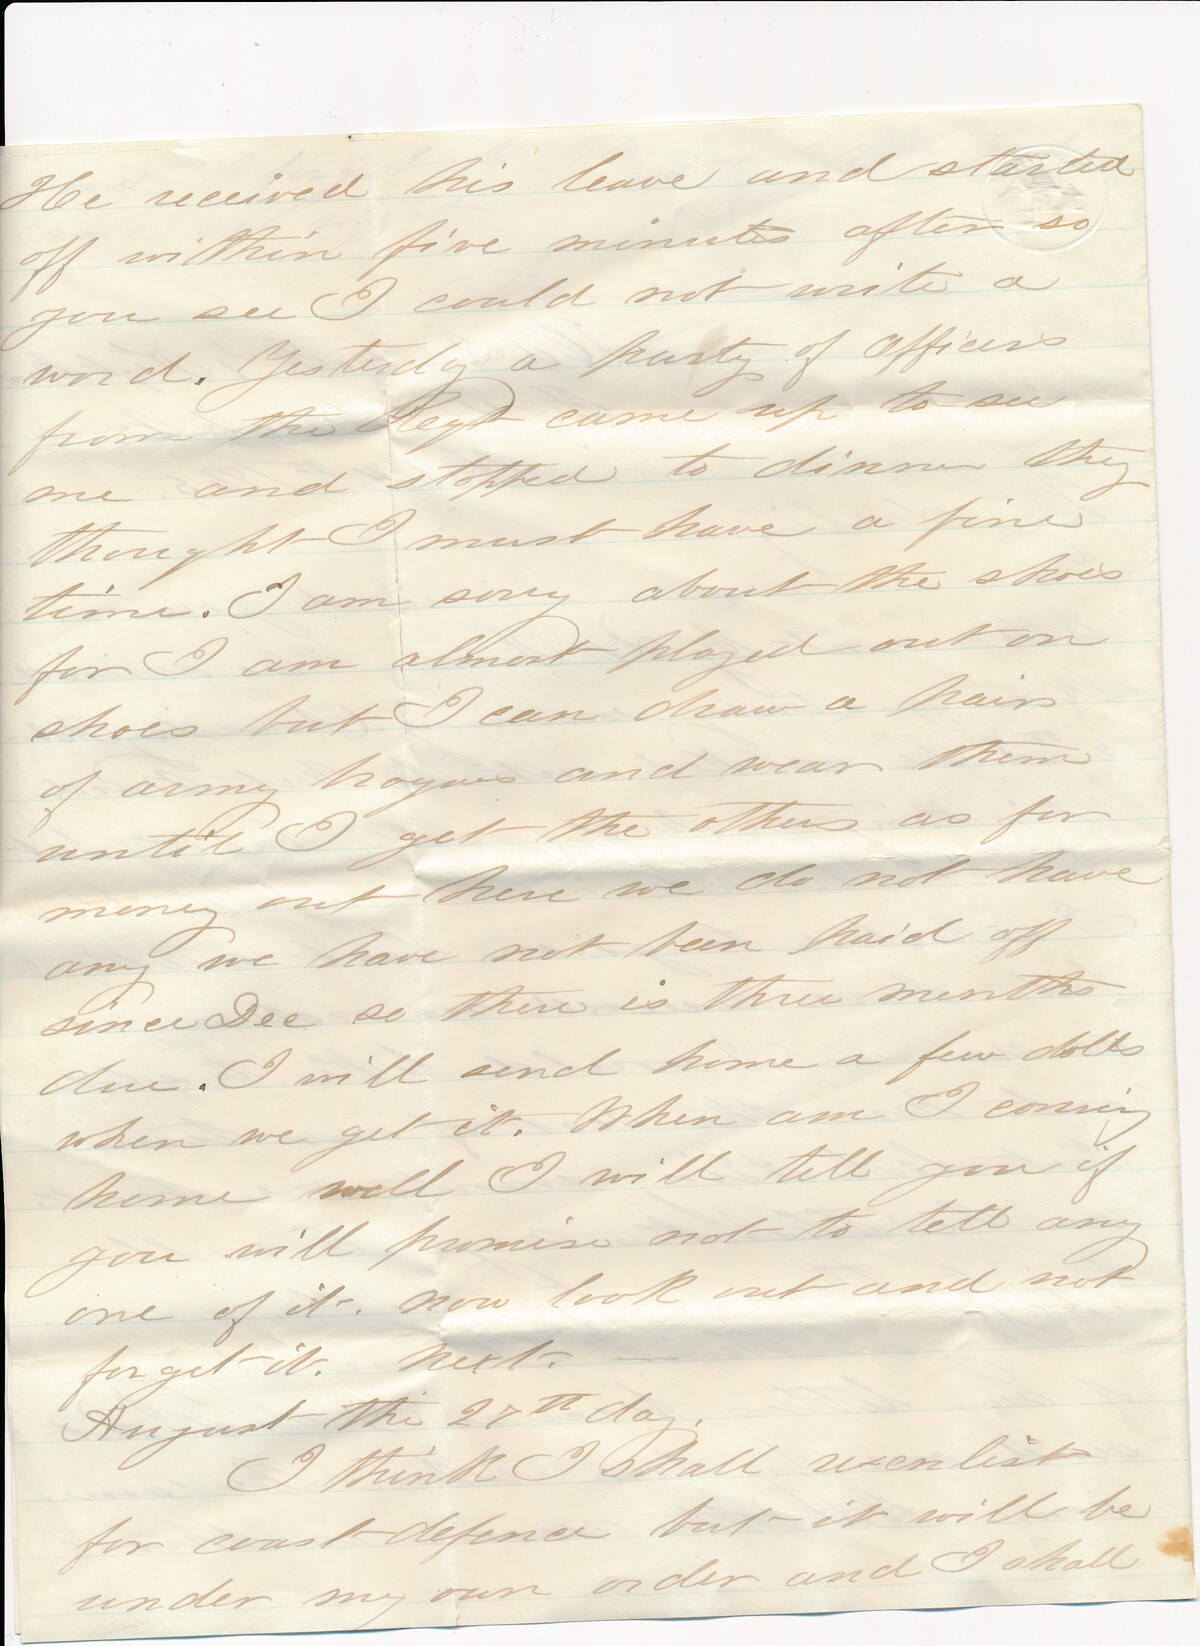 He received his leave and started
off within five minutes after so
you see I could not write a
word. Yesterday a party of officers
from the Regt came up to see
me and stopped to dinner they
thought I must have a fine
time. I am sorry about the shoes
for I am almost played out on
shoes but I can draw a pair
of army brogues and wear them
until I get the others as for
money out here we do not have
any we have not been paid off
since Dec so there is three months
due. I will send home a few dolls
when we get it. When am I coming
home well I will tell you if
you will promise not to tell any
one of it. now look out and not
forget it. Next. —
August the 27th day.
I think I shall reenlist
for coast defence but it will be
under my own order and I shall